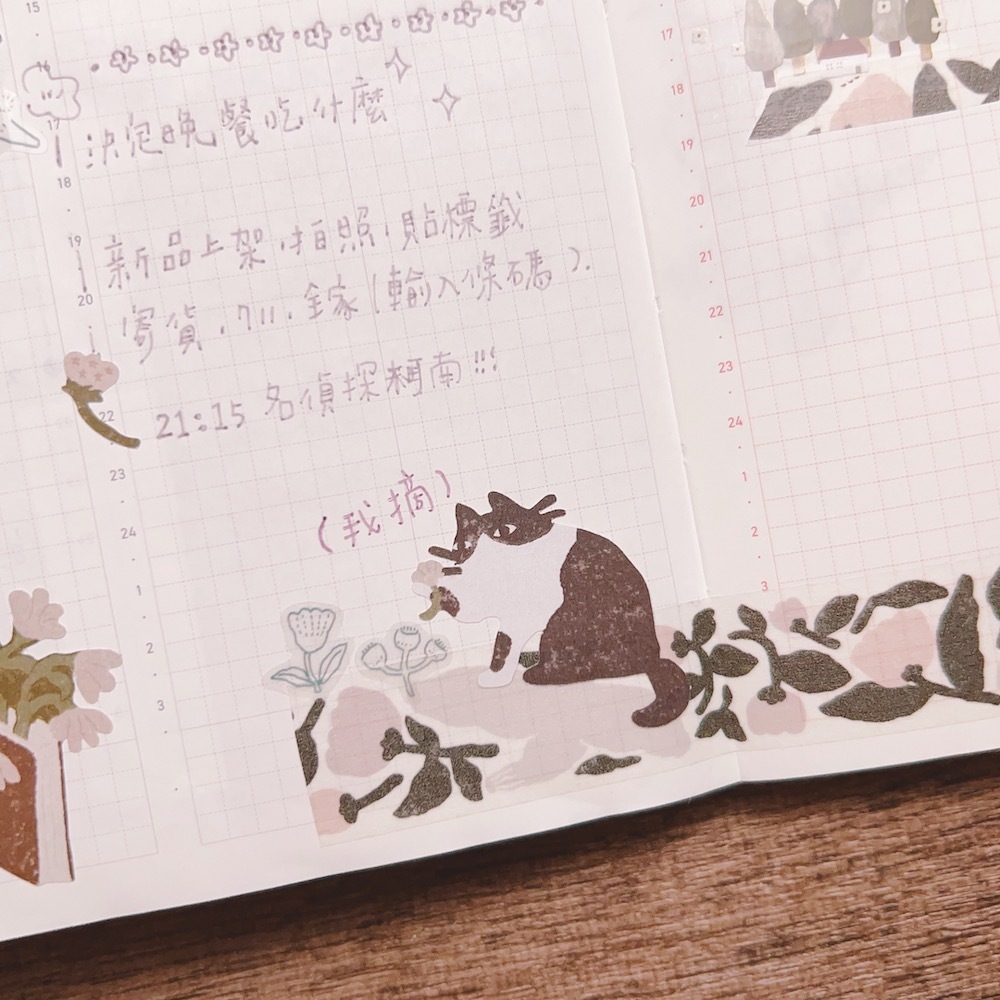 15
16
17
決定晚餐吃什麼
18
19
新品上架、拍照、貼標籤
20
寄貨、711、全家(輸入條碼).
22
21:15 名偵探柯南!!!
23
24
(我摘)
1
2
3
17
18
19
20
21
22
23
24
1
2
3